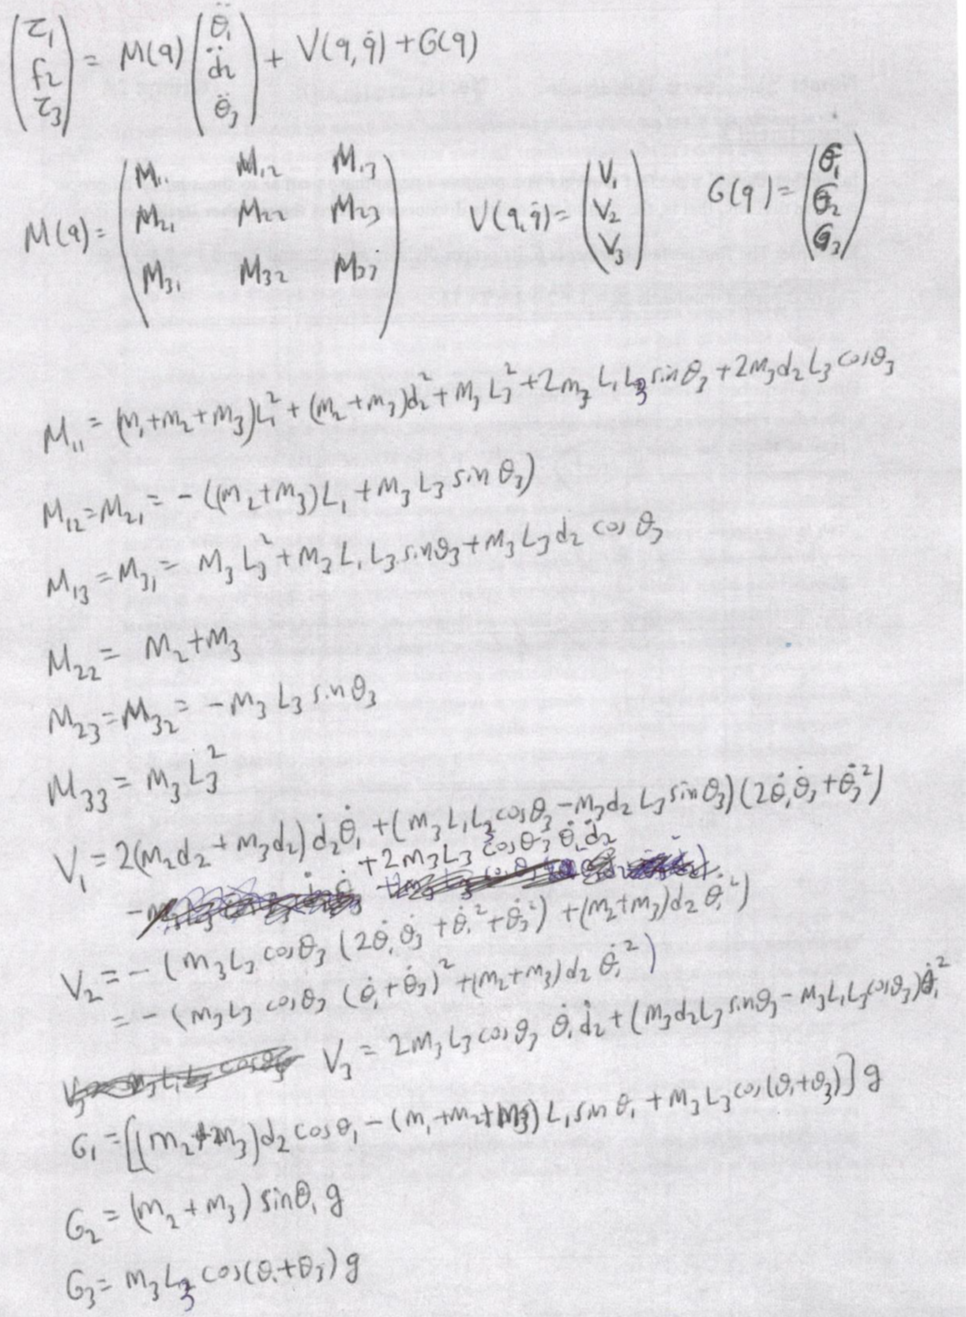 (τ₁ f₂ τ₃) = M(q) (θ̈₁ d̈₂ θ̈₃) + V(q,q̇) + G(q)
M(q) = (M₁₁ M₁₂ M₁₃
M₂₁ M₂₂ M₂₃
M₃₁ M₃₂ M₃₃)
V(q,q̇) = (V₁ V₂ V₃)
G(q) = (G₁ G₂ G₃)
M₁₁ = (m₁+m₂+m₃)L₁² + (m₂+m₃)d₂² + m₃L₃² + 2m₃L₁L₃ sinθ₃ + 2m₃d₂L₃ cosθ₃
M₁₂=M₂₁ = -((m₂+m₃)L₁ + m₃L₃ sinθ₃)
M₁₃=M₃₁ = m₃L₃ + m₃L₁L₃ sinθ₃ + m₃L₃d₂ cosθ₃
M₂₂ = m₂+m₃
M₂₃=M₃₂ = -m₃L₃ sinθ₃
M₃₃ = m₃L₃²
V₁ = 2(m₂d₂+m₃d₂)ḋ₂θ̇₁ + (m₃L₁L₃cosθ₃ - m₃d₂L₃sinθ₃)(2θ̇₁θ̇₃+θ̇₃²)
+2m₃L₃ cosθ₃ θ̇₁ḋ₂
V₂ = -(m₃L₃ cosθ₃ (2θ̇₁θ̇₃+θ̇₁²+θ̇₃²) + (m₂+m₃)d₂θ̇₁²)
= -(m₃L₃ cosθ₃ (θ̇₁+θ̇₃)² + (m₂+m₃)d₂θ̇₁²)
V₃ = 2m₃L₃cosθ₃ θ̇₁ḋ₂ + (m₃d₂L₃sinθ₃ - m₃L₁L₃cosθ₃)θ̇₁²
G₁ = [(m₂+m₃)d₂cosθ₁ - (m₁+m₂+m₃)L₁sinθ₁ + m₃L₃cos(θ₁+θ₃)]g
G₂ = (m₂+m₃) sinθ₁ g
G₃ = m₃L₃ cos(θ₁+θ₃)g